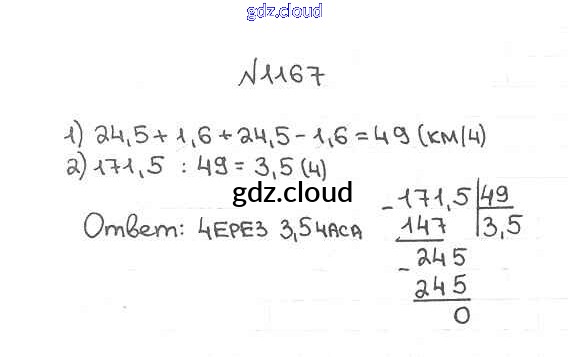 gdz.cloud
№1167
1) 24,5 + 1,6 + 24,5 - 1,6 = 49 (км/ч)
2) 171,5 : 49 = 3,5 (ч)
gdz.cloud
Ответ: ЧЕРЕЗ 3,5 ЧАСА
- 171,5 | 49
147 | 3,5
- 245
245
0